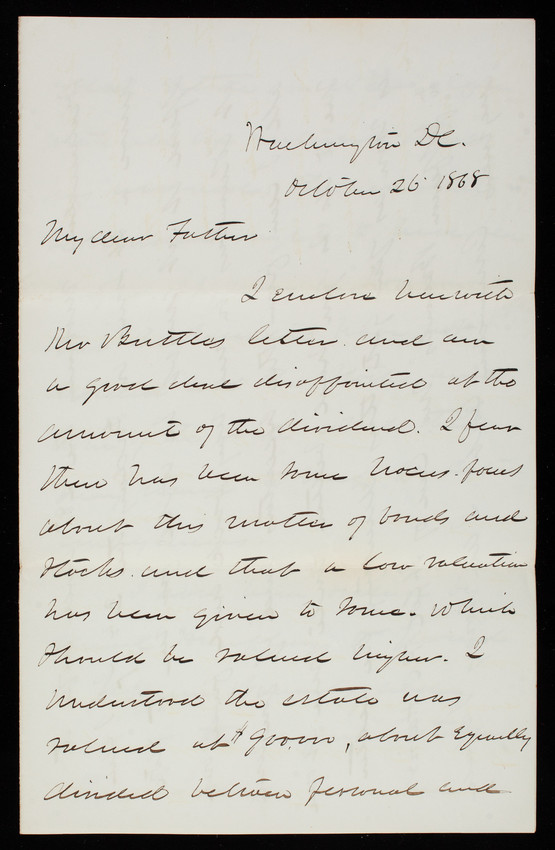 Washington DC.
October 26 1868
My dear Father
I enclose herewith
Mr Buttles letter and am
a good deal disappointed at the
amount of the dividend. I fear
there has been some hocus-pocus
about this matter of bonds and
stocks and that a low valuation
has been given to some. which
should be valued higher. I
understood the estate was
valued at $ , about equally
divided between personal and